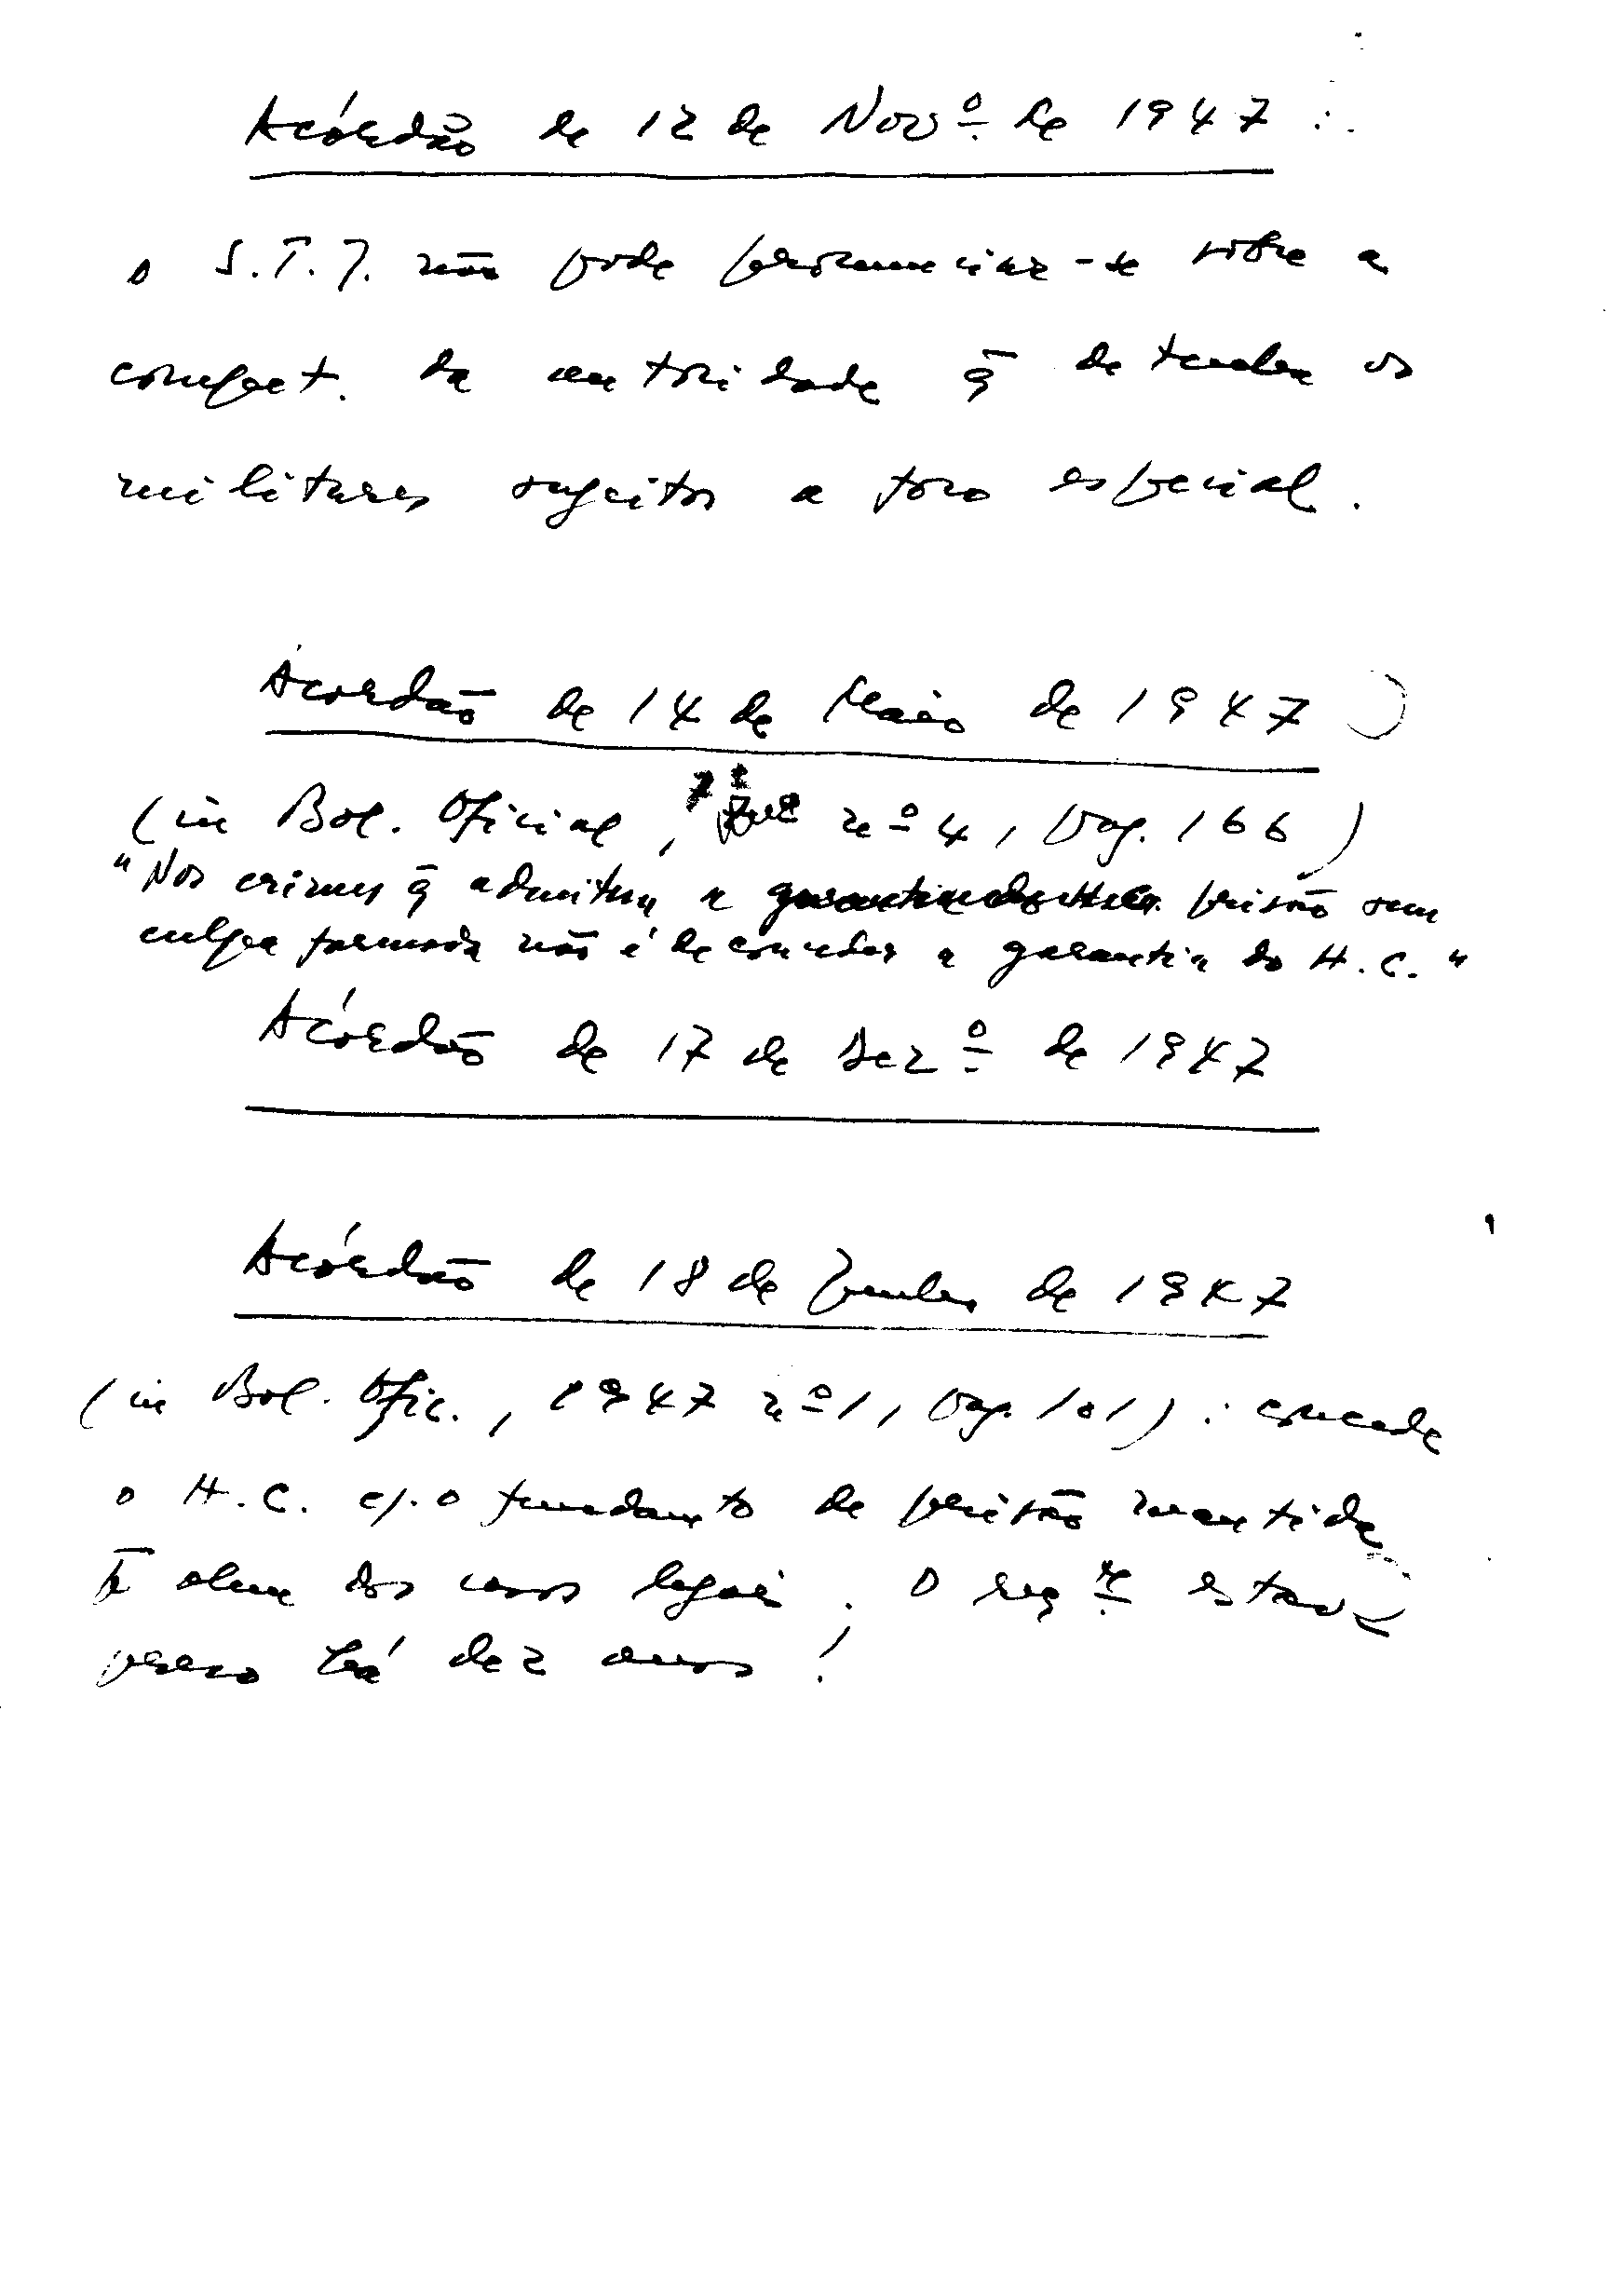 Acórdão de 12 de Novº de 1947 :
o S.T.J. não pode pronunciar-se sôbre a
compet. da autoridade q̄ detenha os
militares sugeitos a foro especial.
Acordão de 14 de Maio de 1947
(in Bol. Oficial, 7º nº 4, pag. 166)
"Nos crimes q̄ admitem a prisão sem
culpa formada não é de conceder a garantia do H.C."
Acórdão de 17 de Dezº de 1947
Acórdão de 18 de Junho de 1947
(in Bol. Ofic., 1947 nº 1, pag. 101) : concede
o H.C. c/. o fundamto de prisão mantida
p̄ alem dos casos legais. O reqte estava
preso há dez anos!